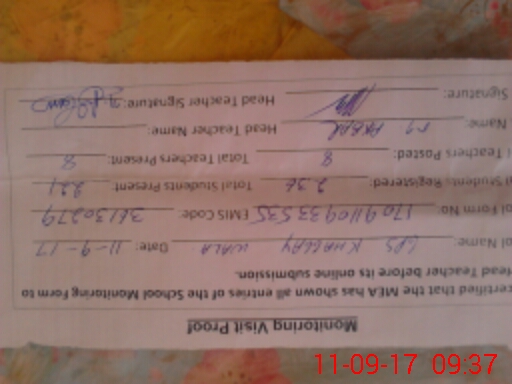 Monitoring Visit Proof
certified that the MEA has shown all entries of the School Monitoring Form to
Head Teacher before its online submission.
ol Name GPS KHALLAY WALA Date: 11-9-17
ol Form No. 1709110933535 EMIS Code: 36130279
l Students Registered: 236 Total Students Present: 221
l Teachers Posted: 8 Total Teachers Present: 8
Name: Head Teacher Name:
Signature: Head Teacher Signature:
11-09-17 09:37